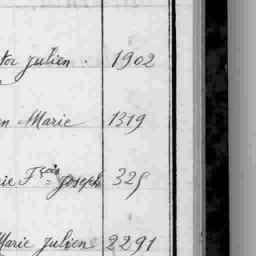 tor julien . 1902
en Marie 1319
rie Fçois = joseph 325
Marie julien 2291